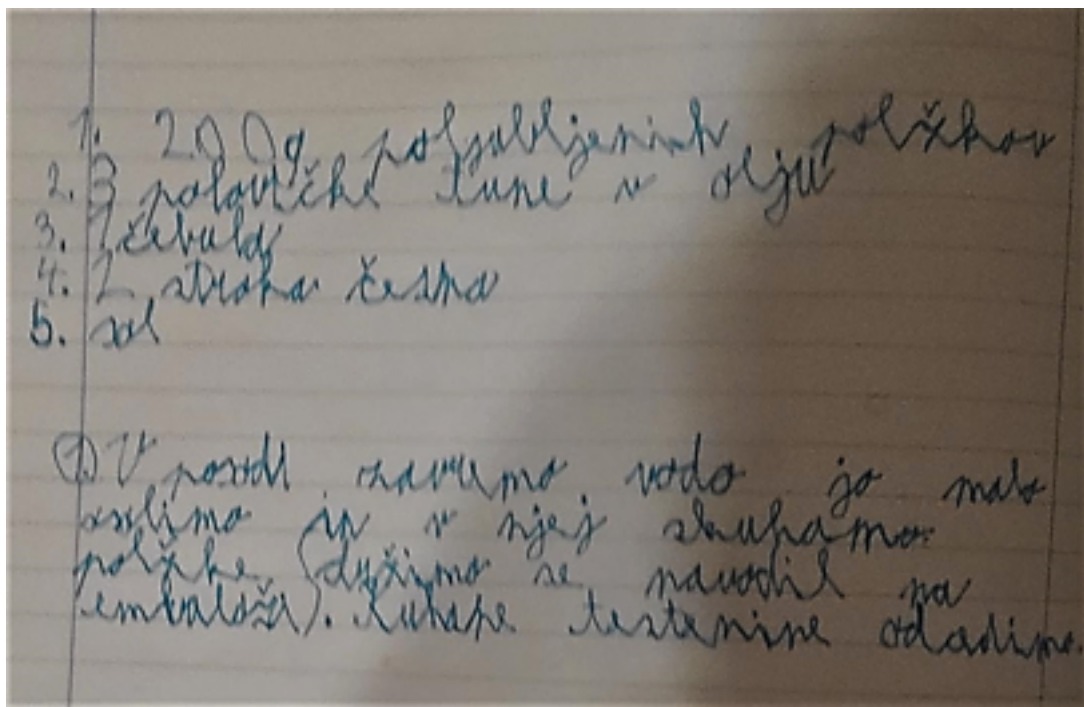 1. 200g poljubljenih polžkov
2. 3 polovičke tune v olju
3. 1 čebula
4. 2 stroka česna
5. sol
1. V posodi zavremo vodo jo malo
solimo in v njej skuhamo
polžke (držimo se navodil na
embalaži). Kuhane testenine odcedimo.